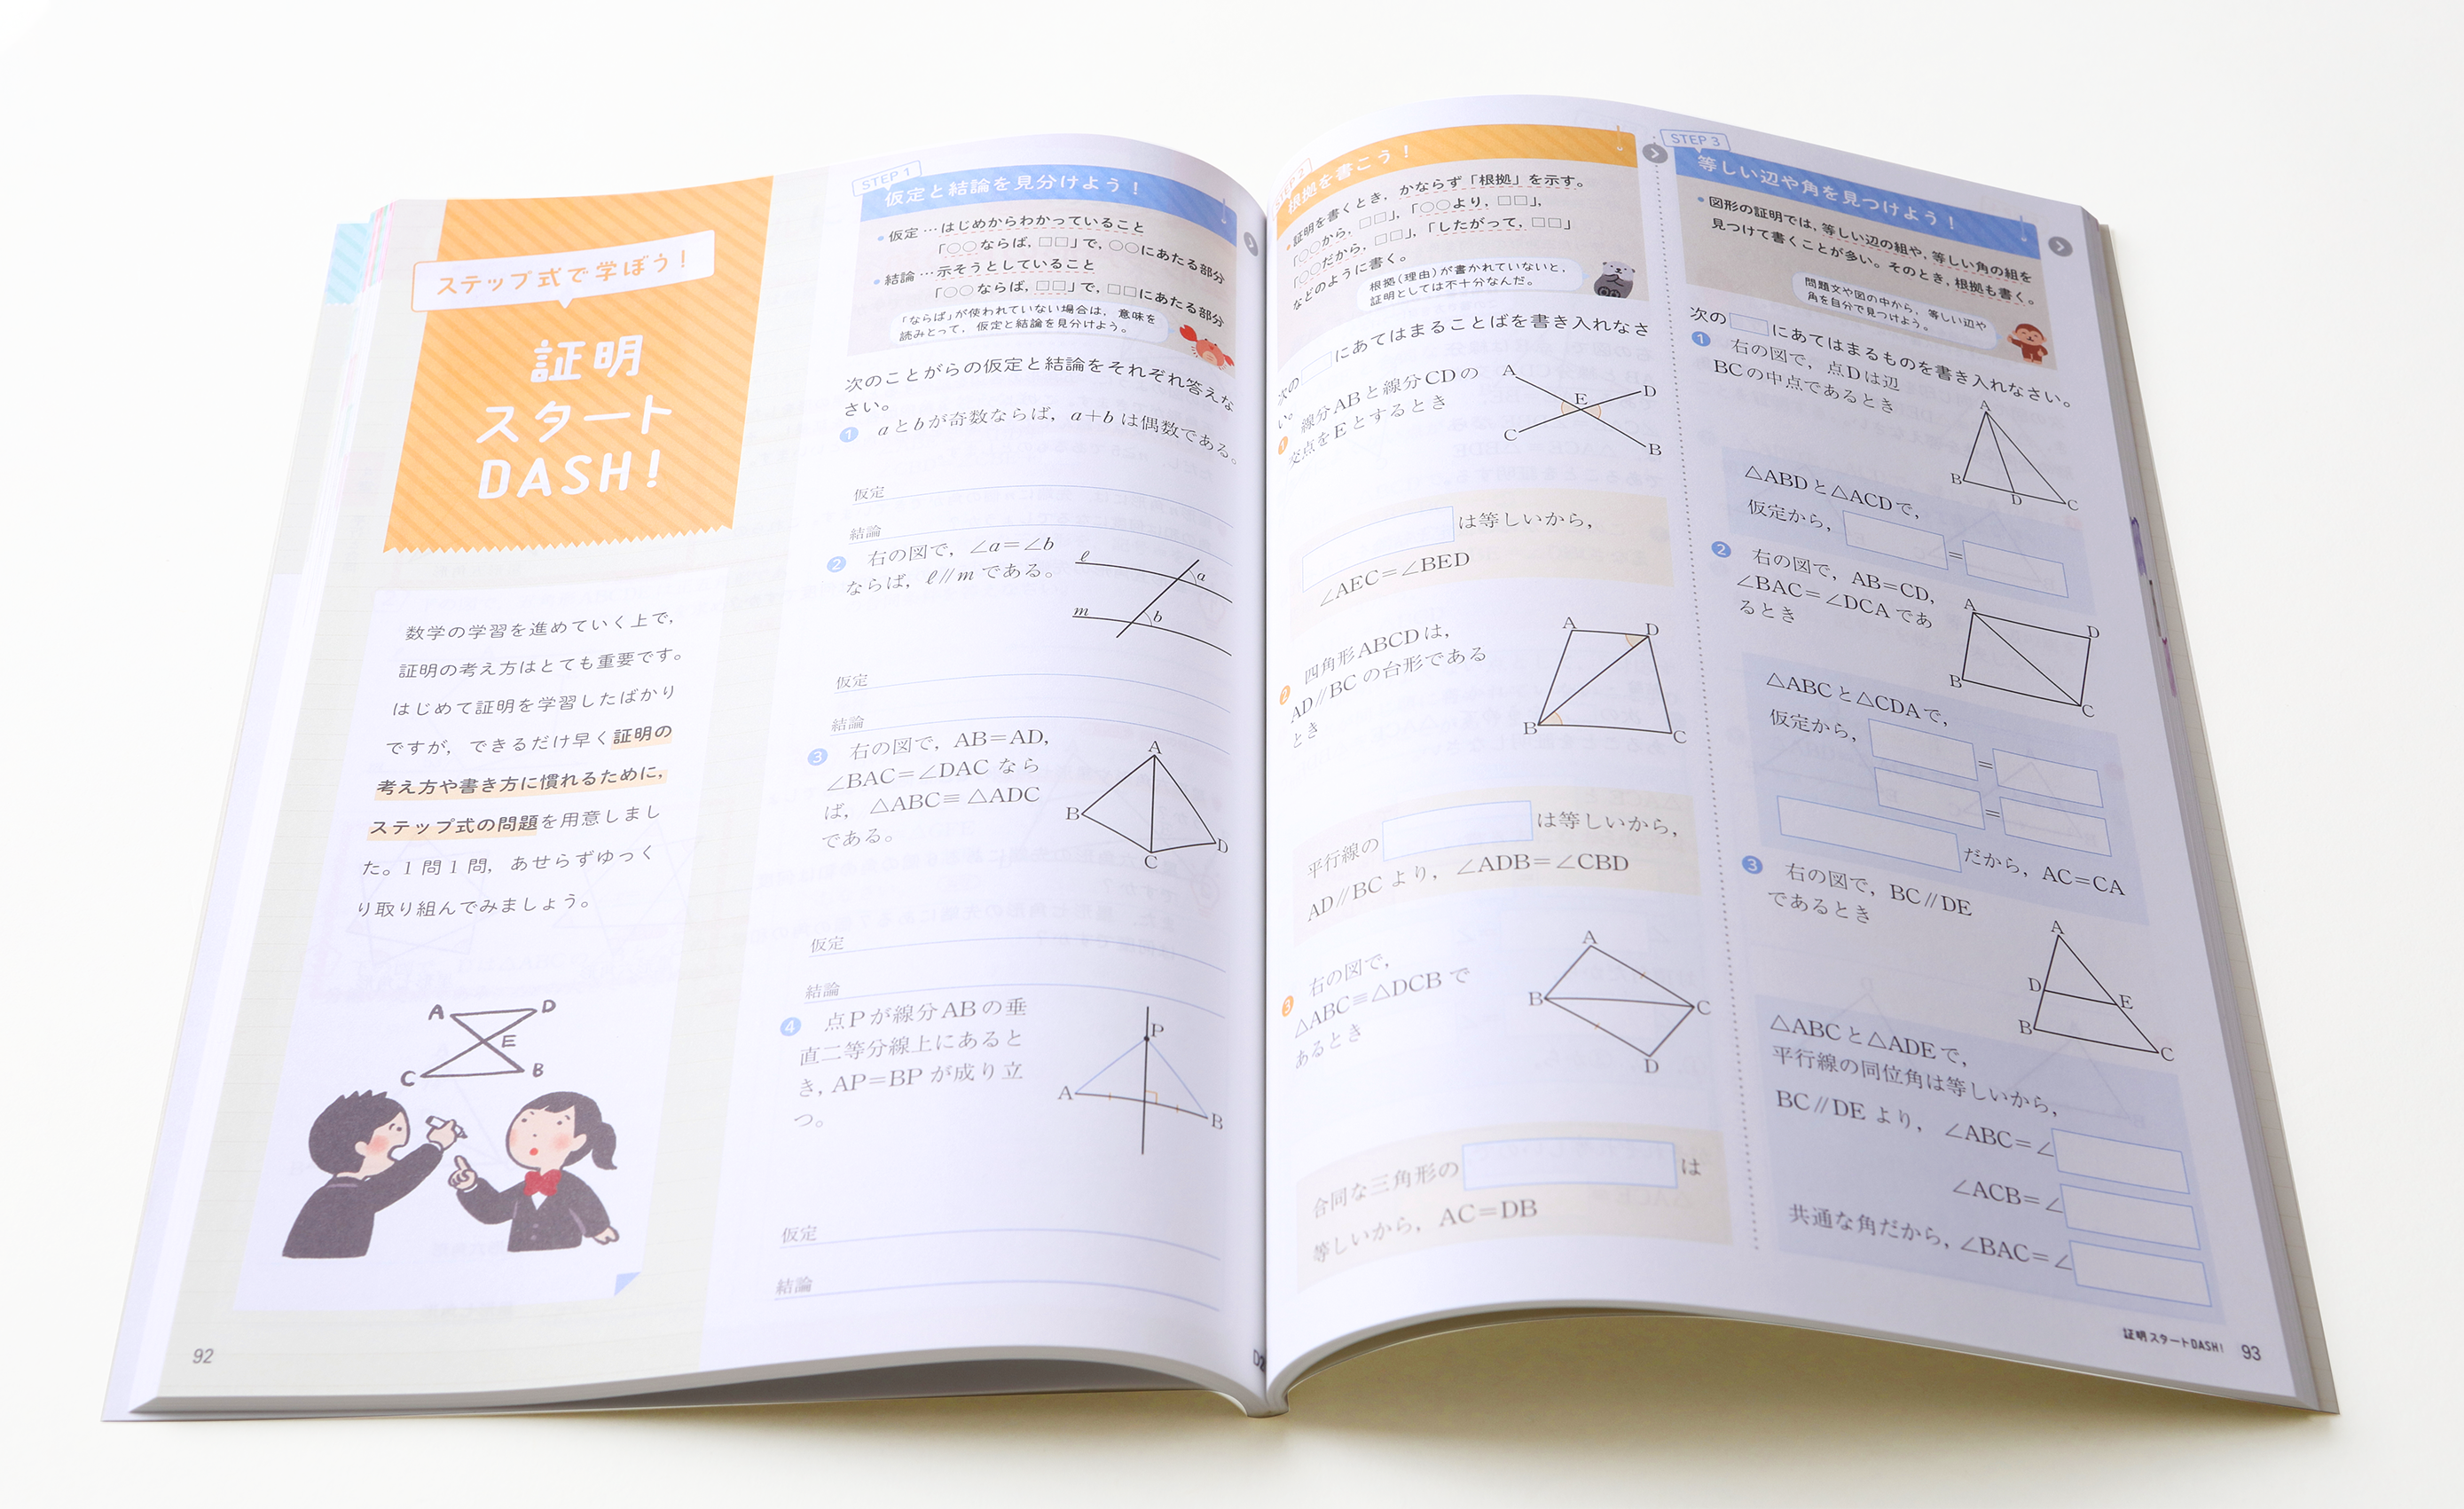 ステップ式で学ぼう！
証明
スタート
DASH！
数学の学習を進めていく上で，
証明の考え方はとても重要です。
はじめて証明を学習したばかり
ですが，できるだけ早く証明の
考え方や書き方に慣れるために，
ステップ式の問題を用意しまし
た。1問1問，あせらずゆっく
り取り組んでみましょう。
A D
E
C B
92
STEP 1
仮定と結論を見分けよう！
●仮定…はじめからわかっていること
「○○ならば，□□」で，○○にあたる部分
●結論…示そうとしていること
「○○ならば，□□」で，□□にあたる部分
「ならば」が使われていない場合は，意味を
読みとって，仮定と結論を見分けよう。
次のことがらの仮定と結論をそれぞれ答えな
さい。
1 aとbが奇数ならば，a＋bは偶数である。
仮定
結論
2 右の図で，∠a＝∠b
ならば，ℓ//mである。
ℓ a
m b
仮定
結論
3 右の図で，AB＝AD，
∠BAC＝∠DAC なら
ば，△ABC≡△ADC
である。
A
B
D
C
仮定
結論
4 点Pが線分ABの垂
直二等分線上にあると
き，AP＝BPが成り立
つ。
P
A
B
仮定
結論
根拠を書こう！
●証明を書くとき，かならず「根拠」を示す。
「○○から，□□」，「○○より，□□」，
「○○だから，□□」，「したがって，□□」
などのように書く。
根拠（理由）が書かれていないと，
証明としては不十分なんだ。
次の□にあてはまることばを書き入れなさ
い。
1 線分ABと線分CDの
交点をEとするとき
A D
E
C B
は等しいから，
∠AEC＝∠BED
2 四角形ABCDは，
AD//BCの台形である
とき
A D
B C
平行線の は等しいから，
AD//BCより，∠ADB＝∠CBD
3 右の図で，
△ABC≡△DCBで
あるとき
A
B C
D
合同な三角形の は
等しいから，AC＝DB
STEP 3
等しい辺や角を見つけよう！
●図形の証明では，等しい辺の組や，等しい角の組を
見つけて書くことが多い。そのとき，根拠も書く。
問題文や図の中から，等しい辺や
角を自分で見つけよう。
次の□にあてはまるものを書き入れなさい。
1 右の図で，点Dは辺
BCの中点であるとき
A
B D C
△ABDと△ACDで，
仮定から， ＝
2 右の図で，AB＝CD，
∠BAC＝∠DCAであ
るとき
A D
B C
△ABCと△CDAで，
仮定から， ＝
＝
だから，AC＝CA
3 右の図で，BC//DE
であるとき
A
D E
B C
△ABCと△ADEで，
平行線の同位角は等しいから，
BC//DEより，∠ABC＝∠
∠ACB＝∠
共通な角だから，∠BAC＝∠
証明スタートDASH！ 93